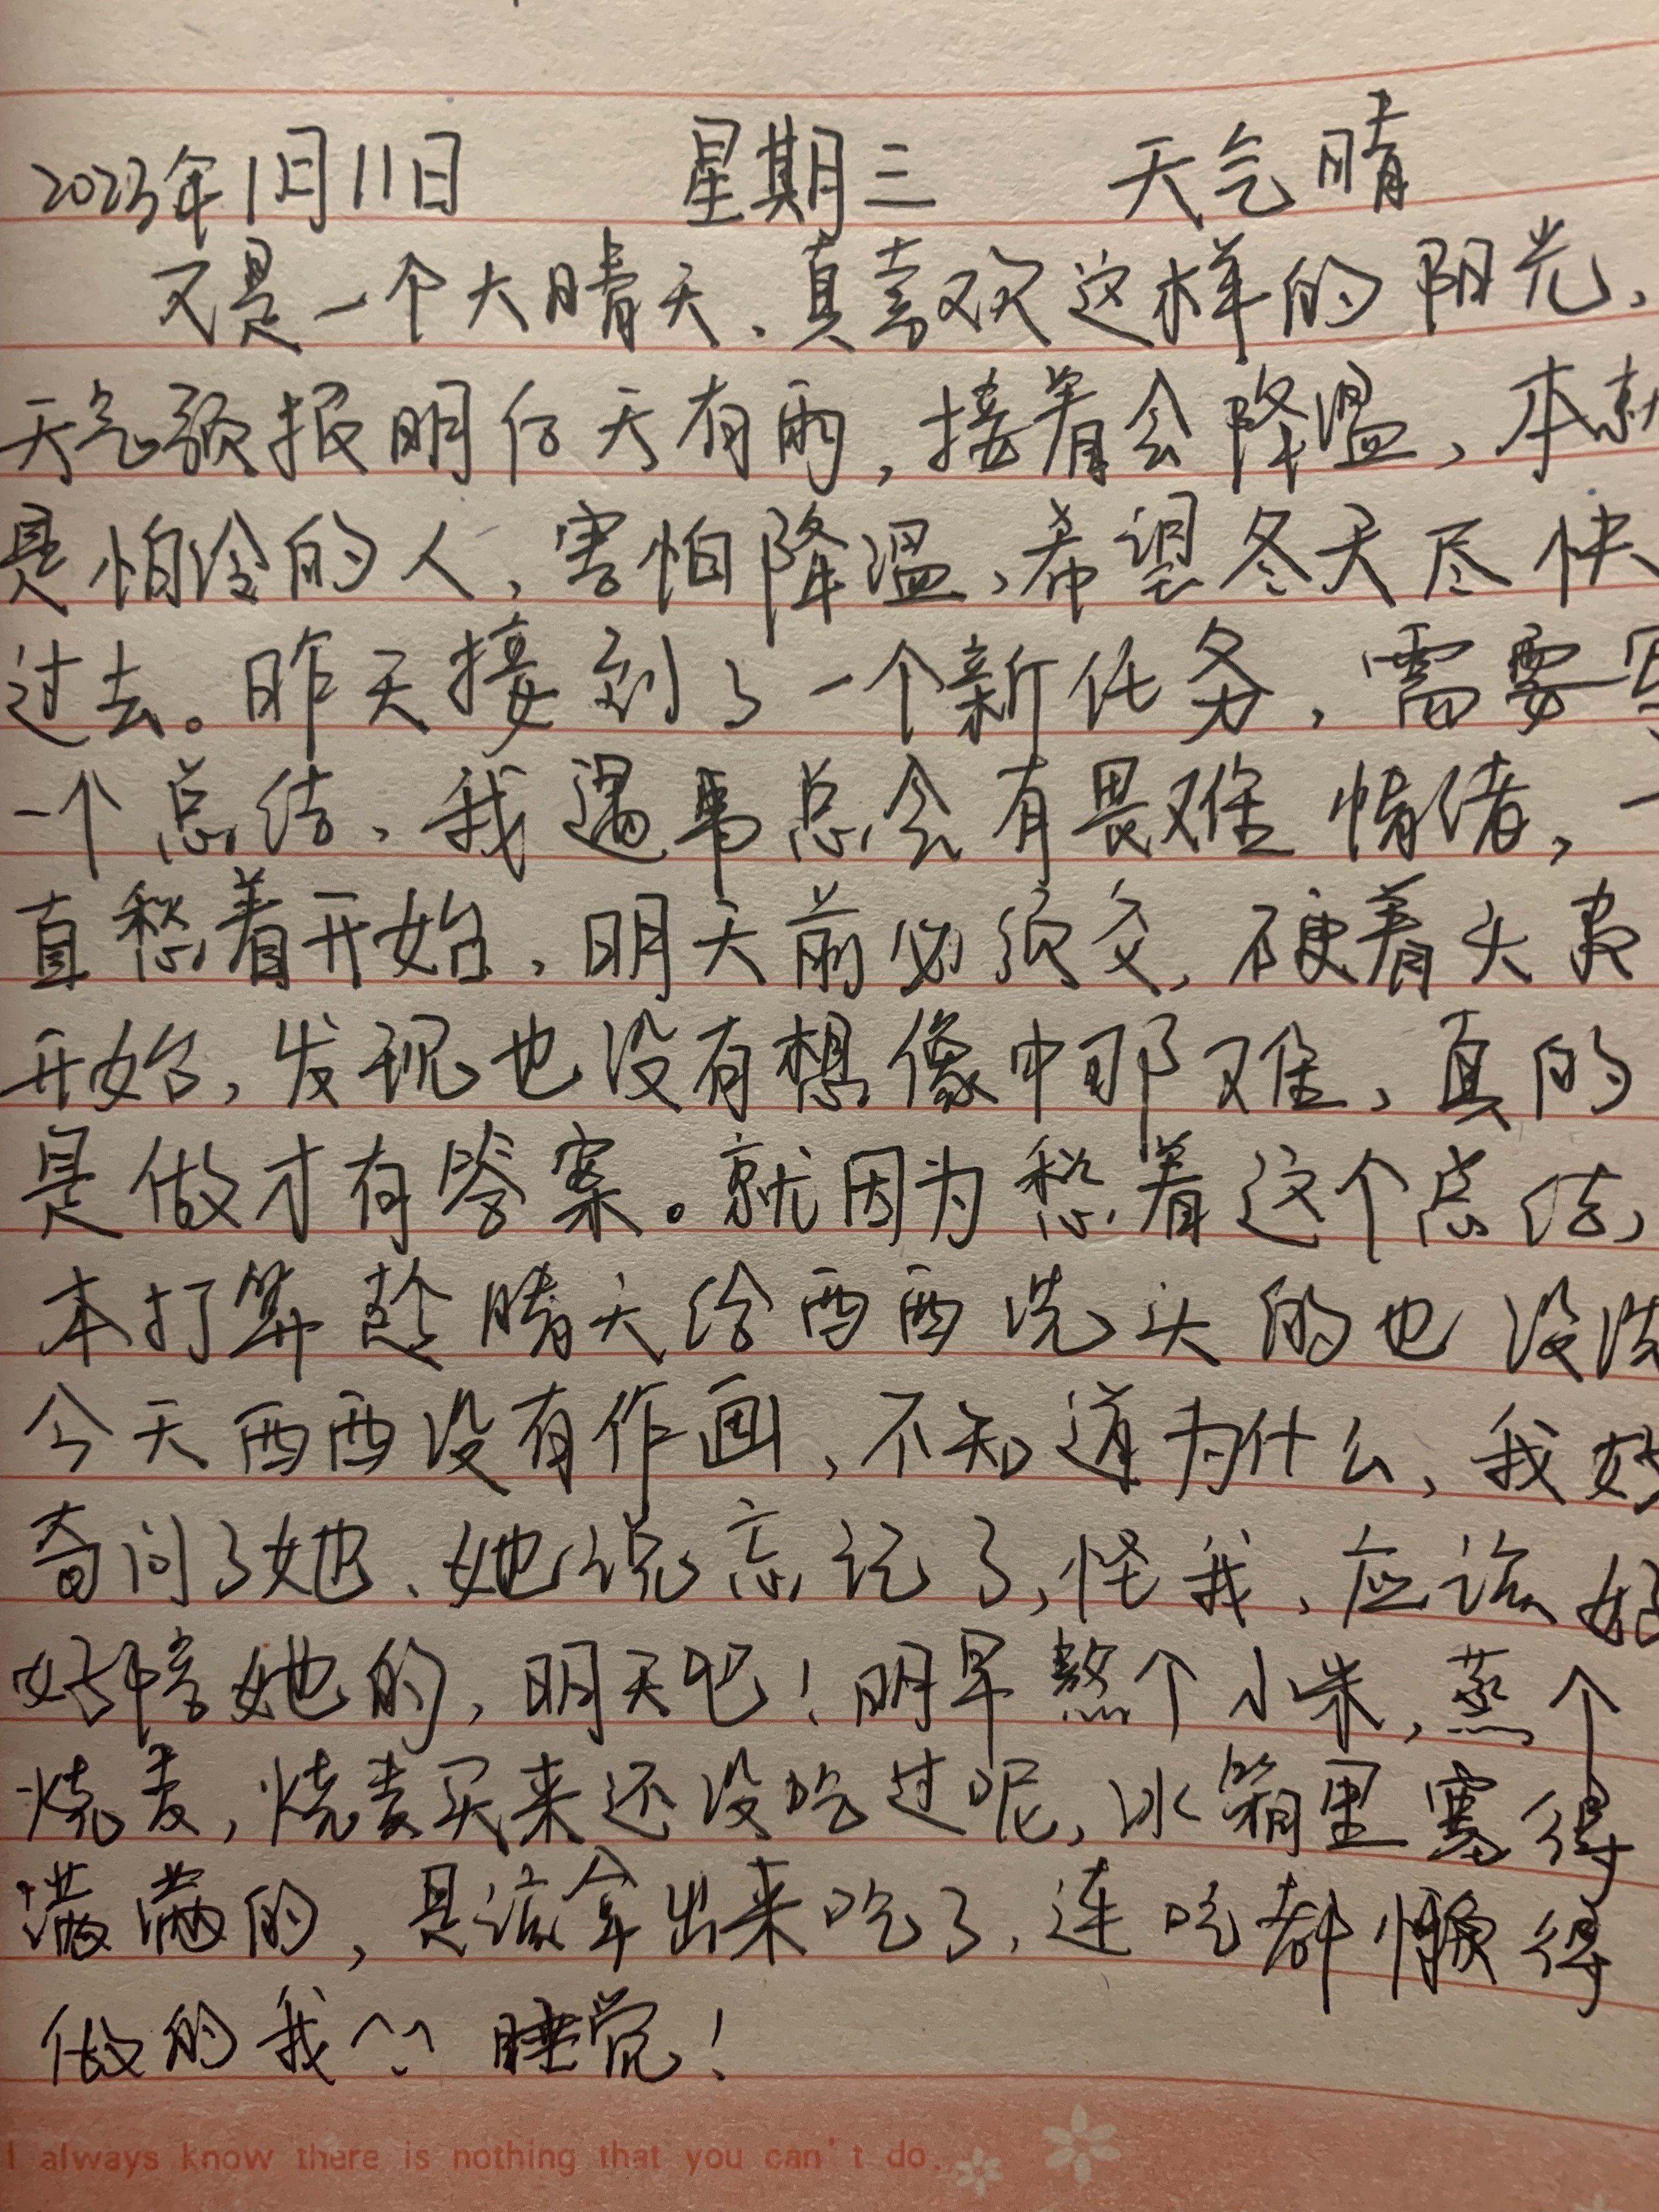 2023年1月11日 星期三 天气晴
又是一个大晴天、真喜欢这样的阳光、
天气预报明后天有雨,接着会降温、本就
是怕冷的人、害怕降温、希望冬天尽快
过去。昨天接到了一个新任务,需要写
一个总结、我遇事总会有畏难情绪,一
直愁着开始、明天前必须交、硬着头皮
开始,发现也没有想像中那难、真的
是做才有答案。就因为愁着这个总结,
本打算趁晴天给西西洗头的也没洗
今天西西没有作画、不知道为什么、我好
奇问了她、她说忘记了,怪我、应该好
好陪她的,明天吧!明早熬个小米,蒸个
烧麦,烧麦买来还没吃过呢,冰箱里塞得
满满的,是该拿出来吃了、连吃都懒得
做的我^_^ 睡觉!
I always know there is nothing that you can't do.